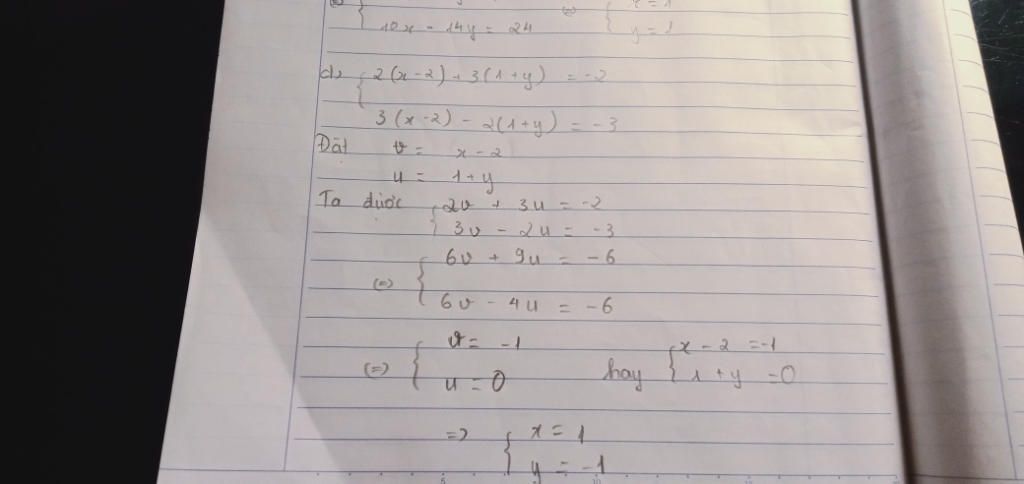 10x - 14y = 24
y = 1
d, 2(x-2) + 3(1+y) = -2
3(x-2) - 2(1+y) = -3
Đặt v = x - 2
u = 1+y
Ta được 2v + 3u = -2
3v - 2u = -3
6v + 9u = -6
(=)
6v - 4u = -6
v = -1 x - 2 = -1
(=) hay
u = 0 1 + y = 0
=> x = 1
y = -1